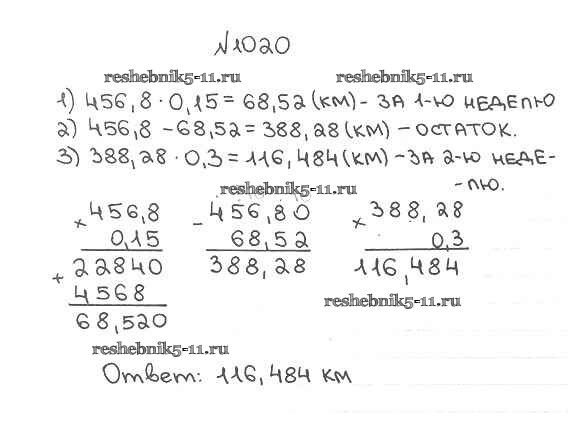 №1020
reshebnik5-11.ru reshebnik5-11.ru
1) 456,8 · 0,15 = 68,52 (км) - за 1-ю неделю
2) 456,8 - 68,52 = 388,28 (км) - остаток.
3) 388,28 · 0,3 = 116,484 (км) - за 2-ю неде-
reshebnik5-11.ru -лю.
× 456,8 - 456,80 × 388,28
0,15 68,52 0,3
+ 22840 388,28 116,484
4568 reshebnik5-11.ru
68,520
reshebnik5-11.ru
Ответ: 116,484 км